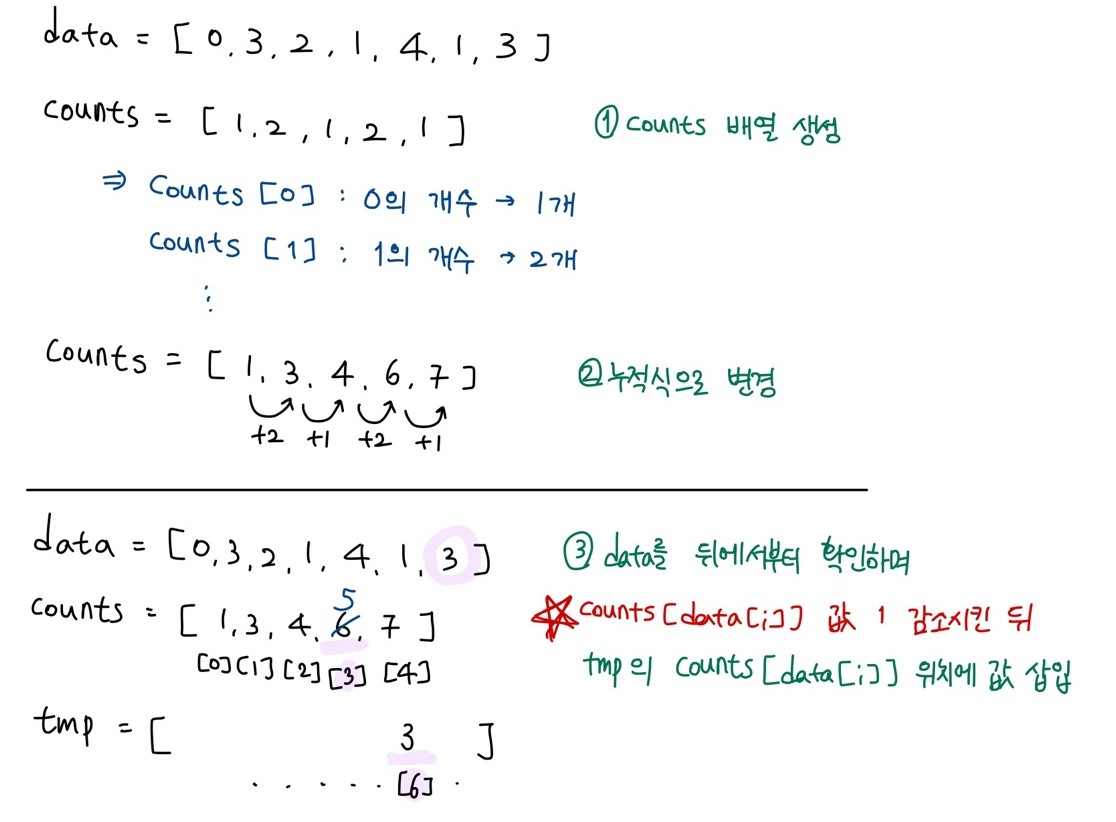 data = [ 0, 3, 2, 1, 4, 1, 3 ]
counts = [ 1, 2, 1, 2, 1 ] ① counts 배열 생성
⇒ Counts [0] : 0의 개수 → 1개
Counts [1] : 1의 개수 → 2개
⋮
Counts = [ 1, 3, 4, 6, 7 ] ② 누적식으로 변경
+2 +1 +2 +1
data = [0, 3, 2, 1, 4, 1, 3 ] ③ data를 뒤에서부터 확인하며
5
counts = [ 1, 3, 4, 6, 7 ] ☆ counts [data[i]] 값 1 감소시킨 뒤
[0] [1] [2] [3] [4] tmp의 counts [data[i]] 위치에 값 삽입
tmp = [ 3 ]
. . . . . [6] .